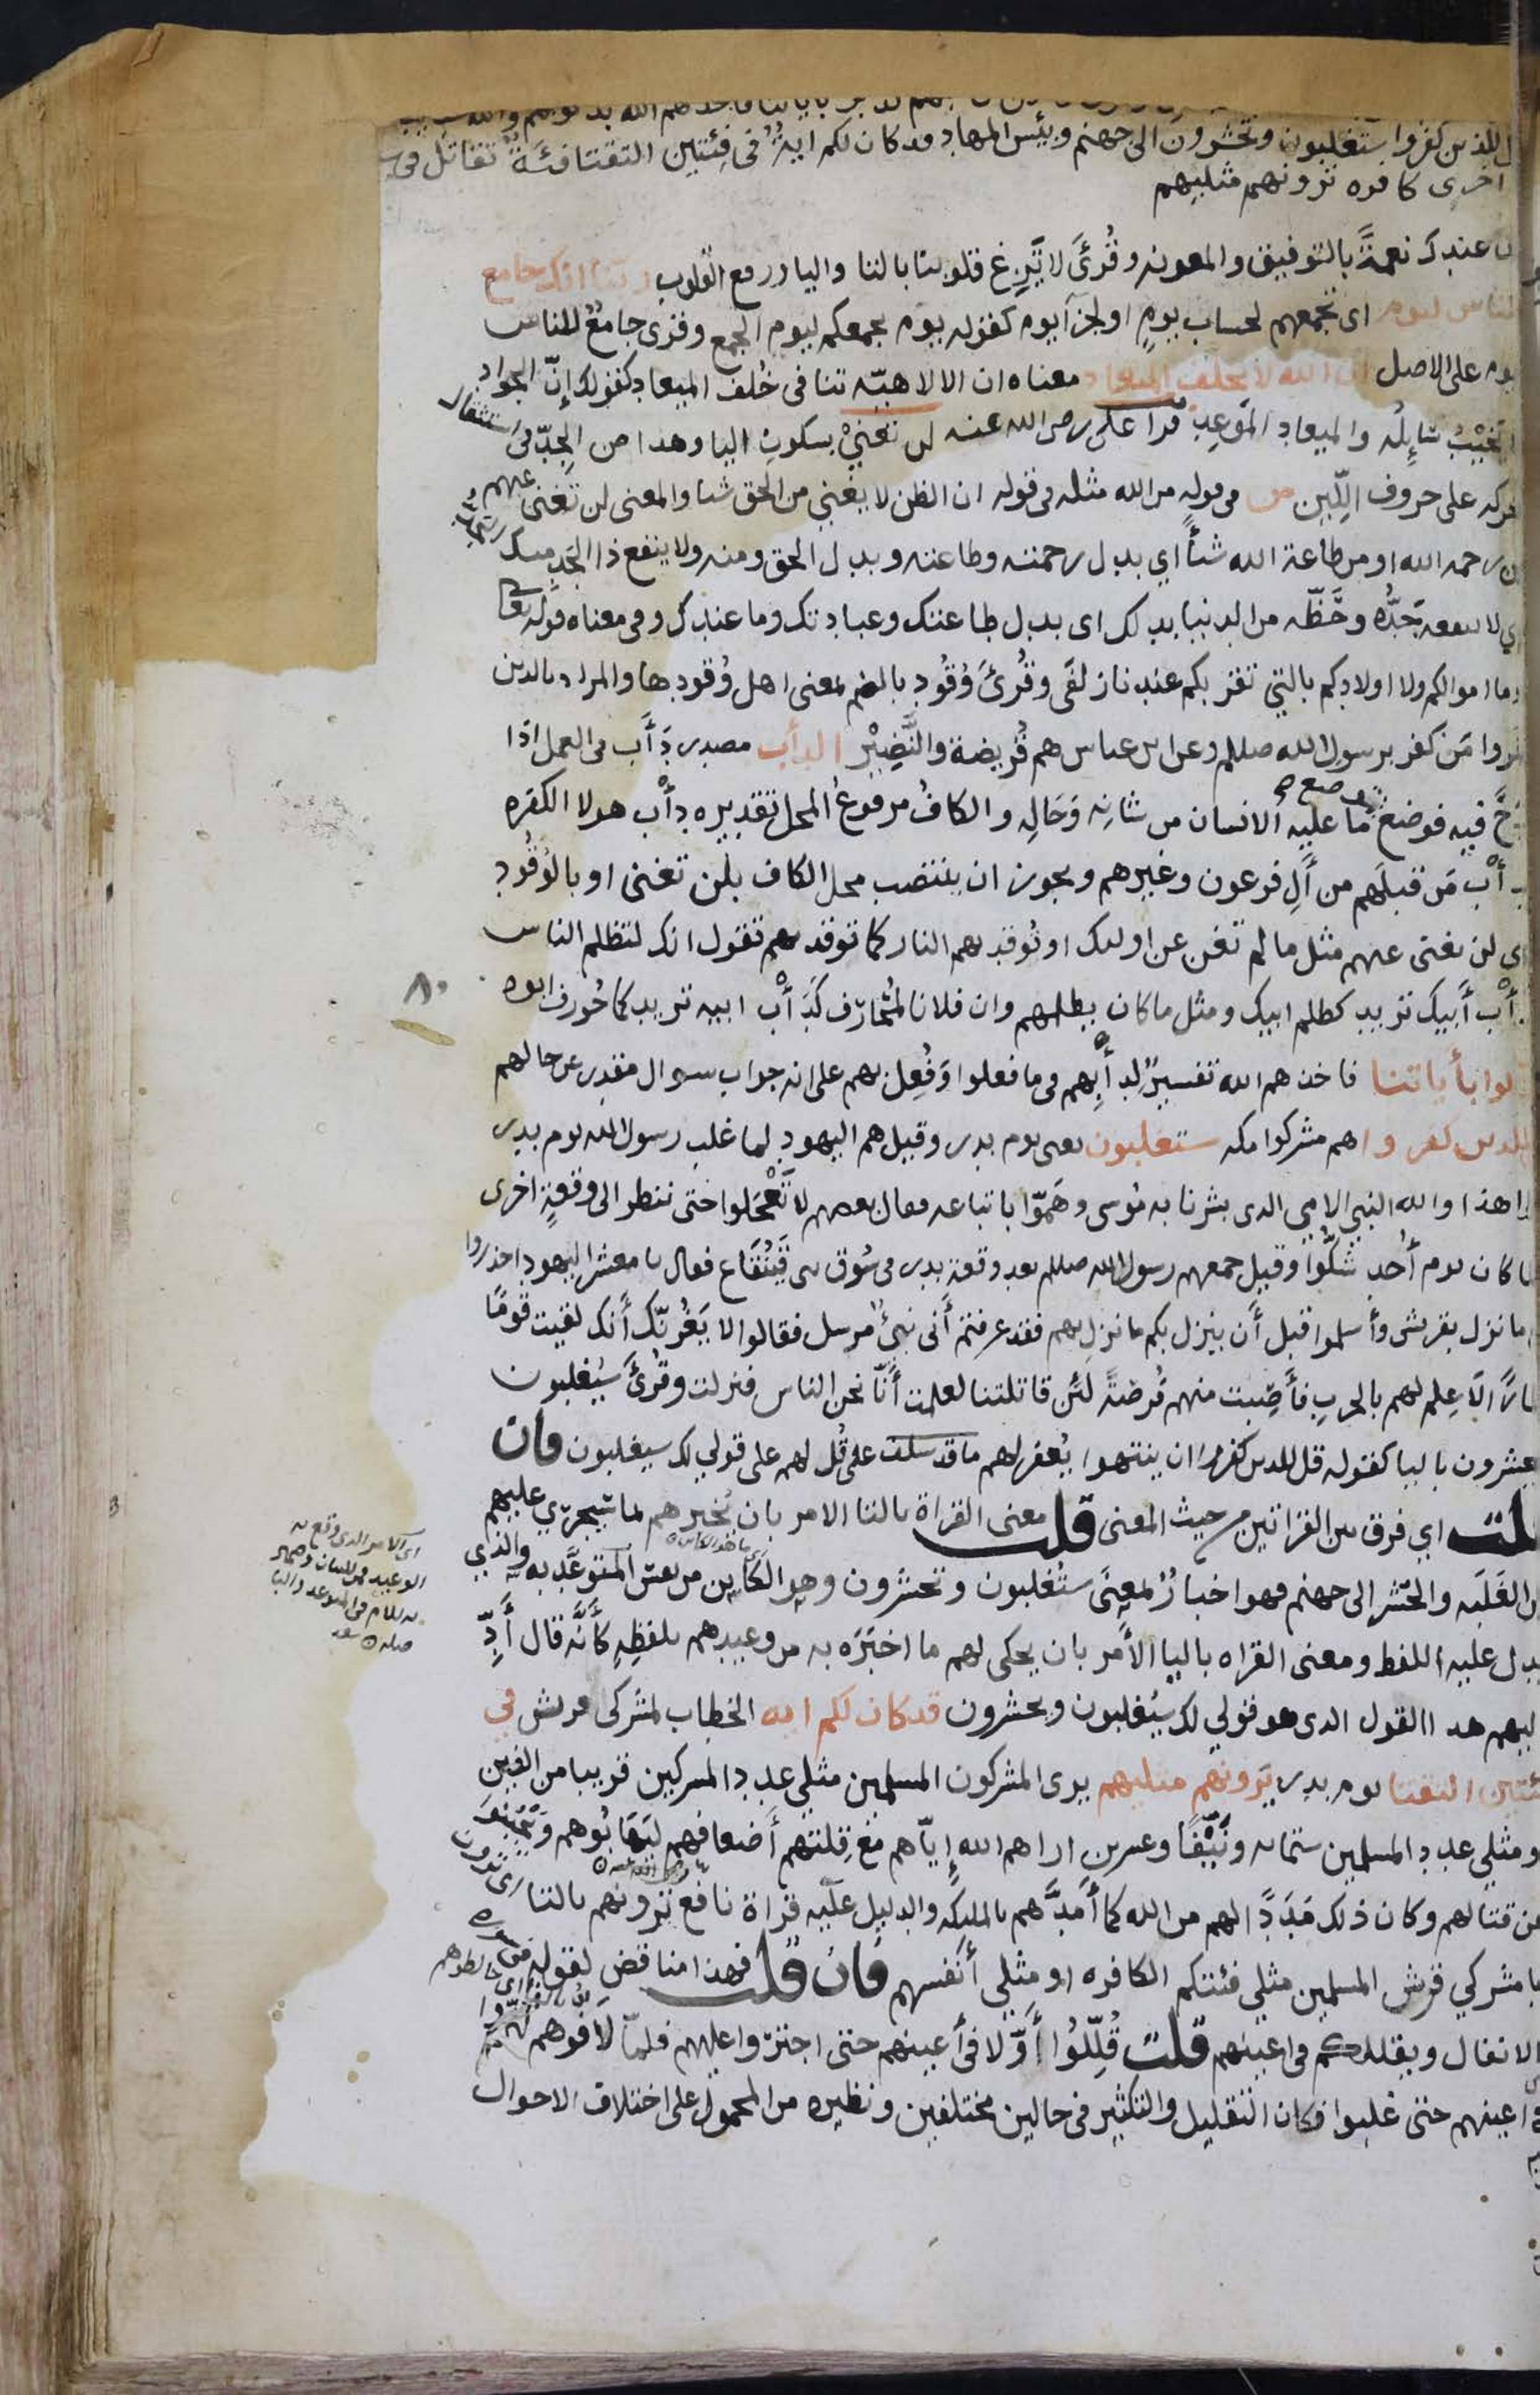 للذين كفروا ستغلبون وتحشرون الى جهنم وبئس المهاد قد كان لكم اية في فئتين التقتا فئة تقاتل في
اخرى كافره ترونهم مثليهم
عندك نعمة بالتوفيق والمعونه وقرئ لا تزغ قلوبنا بالتا واليا ورفع القلوب ربنا انك جامع
الناس ليوم اى تجمعهم لحساب يوم او لجزآ يوم كقوله يوم يجمعكم ليوم الجمع وقرى جامع الناس
يوم على الاصل ان الله لا يخلف الميعاد معناه ان الالاهيّه تنافى خُلف الميعاد كقولك إنّ الجواد
لا يخيّب سَايِلَه والميعاد المَوعِد قرا على رضى الله عنه لن تغنيْ بسكون اليا وهدا من الجدّ فى استثقال
الحركه على حروف اللّين من فى قوله من الله مثله فى قوله ان الظن لا يغني من الحق شيا والمعنى لن تغنى عنهم
من رحمه الله او من طاعة الله شيأ اي بدل رحمته وطاعته وبدل الحق ومنه ولا ينفع ذا الجَد منك
اي لا ينفعه جَدُّه وحَظّه من الدنيا بدلك اى بدل طاعتك وعبادتك وما عندك وفى معناه قوله تعالى
وما اموالكم ولا اولادكم بالتي تقربكم عندنا زلفَى وقُرئَ وُقُود بالضم بمعنى اهل وُقودها والمراد بالدين
كفروا مَن كفر برسول الله صلعم وعن ابن عباس هم قُريضة والنَّضِيْر الدأب مصدر دَأَب فى العمل اذا
كدح فيه فوضع موضع ما عليه الانسان من شانِه وَحَالِه والكافُ مرفوعُ المحل تقديره دأْب هولا الكفره
كدأْب مَن قبلَهم من آلِ فرعون وغيرهم ويجوز ان ينتصب محل الكاف بلن تغنى او بالوُقُود
اى لن تغنى عنهم مثل ما لم تغن عن اولئك او تُوقد بهم النار كما توقد بهم تقول انك لتظلم الناس
كدأْب أَبيك تريد كظلم ابيك ومثل ما كان يظلمهم وان فلانا لمُحَارَف كَدَأْب ابيه تريد كما حُورف ابوه
٨٠
كذبوا بأياتنا فاخذهم الله تفسيرٌ لِدأبِهم فى ما فعلوا وَفُعِل بهم على انه جواب سوال مقدر عن حالهم
للدين كفروا هم مشركوا مكه ستغلبون يعنى يوم بدر وقيل هم اليهود لما غلب رسول الله يوم بدر
قالوا هذا والله النبي الامي الذى بشرنا به مُوسى وَهَمّوا باتباعه فقال بعضهم لا تَعْجَلوا حتى ننظر الى وقعةٍ اخرى
فلما كان يوم أُحد شَكُّوا وقيل جمعهم رسول الله صلعم بعد وقعة بدر فى سُوق بنى قَيْنُقَاع فقال يا معشر اليهود احذروا
مثل ما نزل بقريش وأسلموا قبل أَن ينزل بكم ما نزل بهم فقد عرفتم أَنى نبيٌ مرسل فقالوا لا يَغُرنّك أَنك لقيت قومًا
أغمارًا لَا عِلم لهم بالحرب فأَصَبت منهم فُرصَةً لَئن قاتلتنا لعلمت أَنّا نحن الناس فنزلت وقُرئَ سَيُغلبون
ويحشرون باليا كقوله قل للذين كفروا ان ينتهوا يُغفر لهم ما قد سلف على قُل لهم على قولي لك سيغلبون فان
قلت اي فرق بين القراتين من حيث المعنى قلت معنى القراة بالتا الامر بان يُخبرهم بما سيجري عليهم
من الغَلَبَه والحَشر إلى جهنم فهو اخبارٌ بمعنَى ستُغلبون وتحشرون وهو الكَاين من نفس المتَوعَّد به والذي
يدل عليه اللفظ ومعنى القراه باليا الأَمر بان يحكى لهم ما اخبَرَه به من وعيدهم بلفظِهِ كأَنَّه قال أَدِّ
اليهم هدا القول الدى هو قولي لك سَيُغلبون ويحشرون قد كان لكم ايه الخطاب لمشركى قريش في
فئتين التقتا يوم بدر يَرونهم مثليهم يرى المشركون المسلمين مثلي عدد المشركين قريبا من الفين
او مثلي عدد المسلمين ستمايه ونَيِّفًا وعشرين اراهم الله إِيّاهم مع قِلتهم أَضعافهم ليَهَابُوهم ويَجْبُنوا
عن قتالهم وكان ذلك مَدَدًا لهم من الله كما أَمَدَّهم بالمليكه والدليل عليه قراة نافع ترونهم بالتا اى ترون
يا مشركي قريش المسلمين مثلي فئتكم الكافره او مثلي أَنفسهم فان قلت فهذا مناقض لقوله فى سوره
الانفال ويقللكم فى اعينهم قلت قُلِّلُوا أَوَّلا في أَعينهم حتى اجترّوا عليهم فلمّا لَاقَوهم كثروا
فى اعينهم حتى غلبوا فكان التقليل والتكثير فى حالين مختلفين ونظيره من المحمول على اختلاف الاحوال